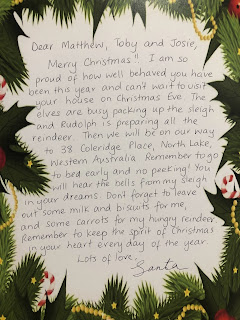 Dear Matthew, Toby and Josie,
Merry Christmas!! I am so
proud of how well behaved you have
been this year and can't wait to visit
your house on Christmas Eve. The
elves are busy packing up the sleigh
and Rudolph is preparing all the
reindeer. Then we will be on our way
to 38 Coleridge Place, North Lake,
Western Australia. Remember to go
to bed early and no peeking! You
will hear the bells from my sleigh
in your dreams. Don't forget to leave
out some milk and biscuits for me,
and some carrots for my hungry reindeer.
Remember to keep the spirit of Christmas
in your heart every day of the year.
Lots of love,
Santa